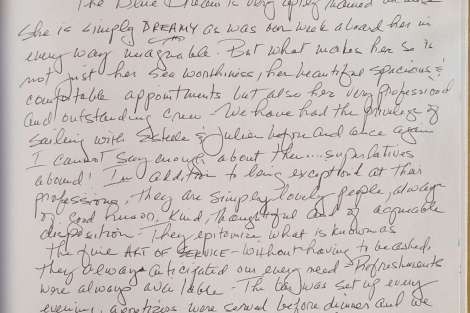 The Blue Dream is very aptly named
She is simply DREAMY as was our week aboard her in
every way imaginable. But what makes her so is
not just her sea worthiness, her beautiful spacious &
comfortable appointments but also her very professional
and outstanding crew. We have had the privilege of
sailing with & Julien before and once again
I cannot say enough about them... superlatives
abound! In addition to being exceptional at their
professions, they are simply lovely people, always
of good humor, kind, thoughtful and of amicable
disposition. They epitomize what is known as
the fine ART OF SERVICE - without having to be asked,
they always anticipated our every need - Refreshments
were always available - The bar was set up every
evening, appetizers were served before dinner and we